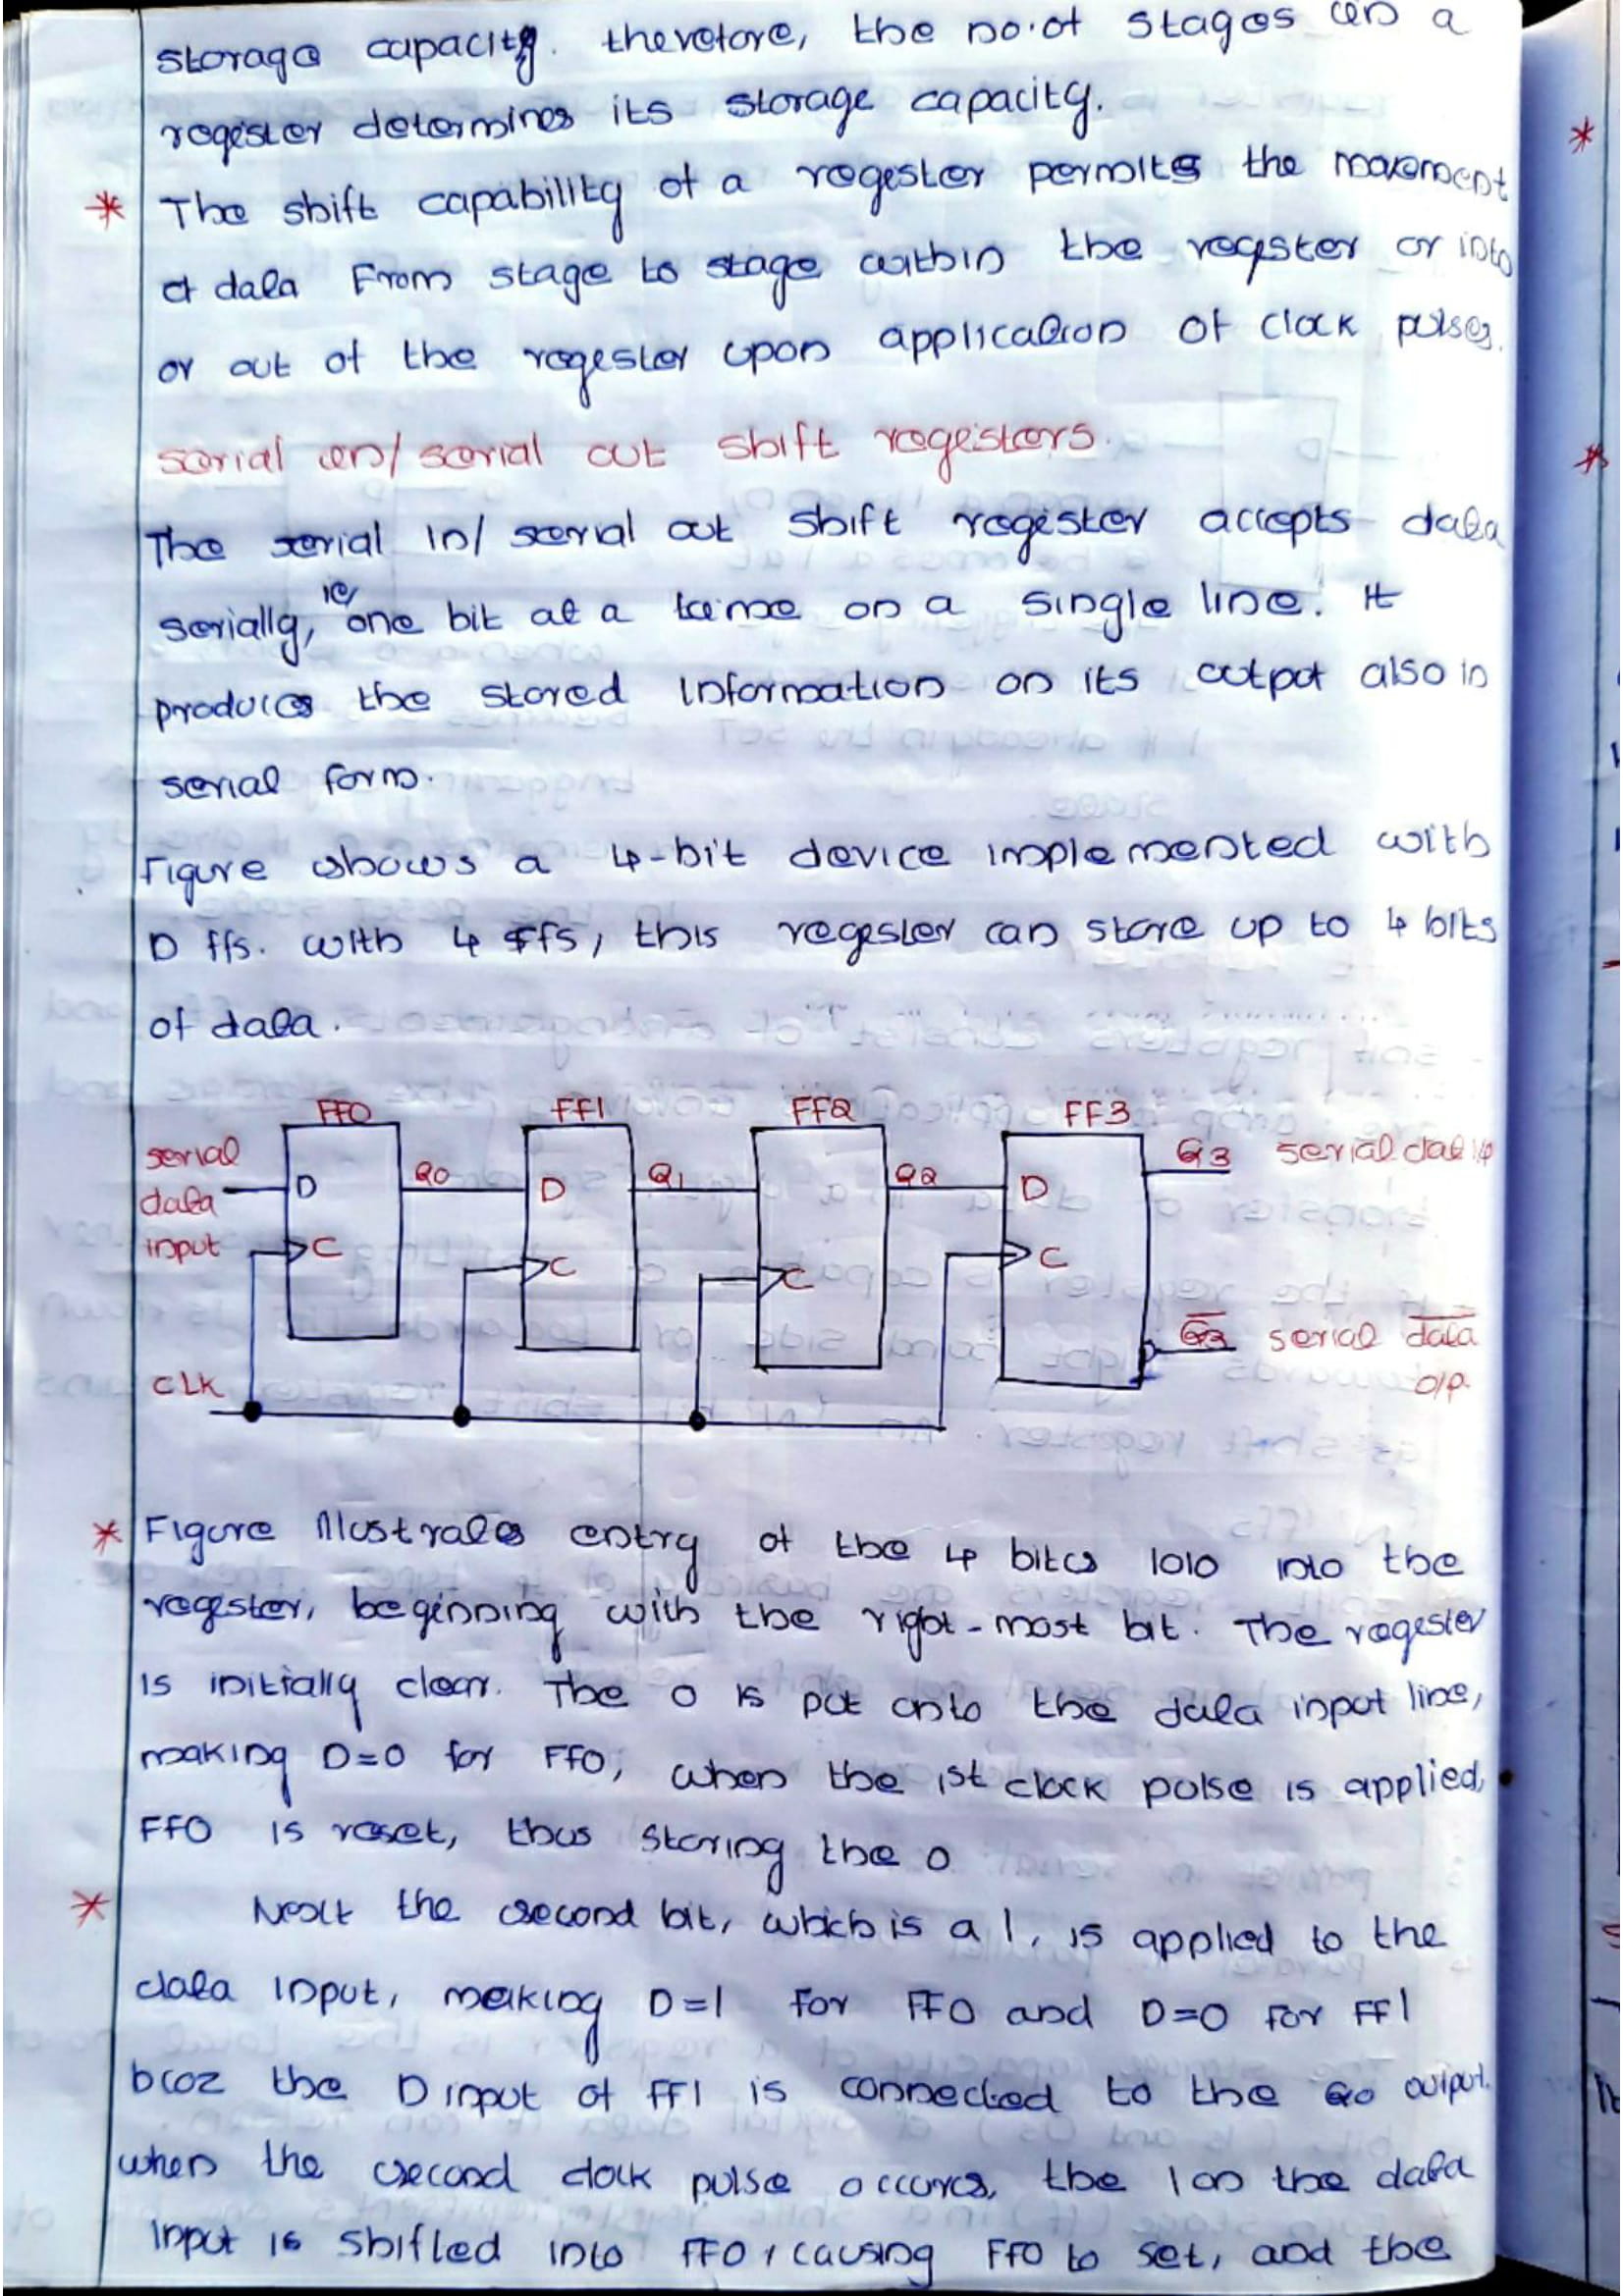 storage capacity. therefore, the no.of stages in a
register determines its storage capacity.
* The shift capability of a register permits the movement
of data From stage to stage within the regster or into
or out of the register upon application of clock pulses.
serial in/ serial out shift registers.
The serial in/ serial out shift register accepts data
serially, ie/ one bit at a time on a single line. It
produces the stored information on its output also in
serial form.
Figure shows a 4-bit device implemented with
D ffs. with 4 ffs, this register can store up to 4 bits
of data.
FF0 FF1 FF2 FF3
serial data input
D C Q0 D C Q1 C Q2 D C
Q3 serial data
Q̅3̅ serial d̅a̅t̅a̅ O/P.
CLK
* Figure illustrates entry of the 4 bits 1010 into the
regester, beginning with the right-most bit. The regester
is initially clear. The 0 is put onto the data input line,
making D=0 for FF0, when the 1st clock pulse is applied,
FF0 is reset, thus storing the 0
* Next the second bit, which is a 1, is applied to the
data input, making D=1 for FF0 and D=0 for FF1
bcoz the D input of FF1 is connected to the Q0 output.
when the second clock pulse occures, the 1 on the data
input is shifted into FF0, causing FF0 to set, and the